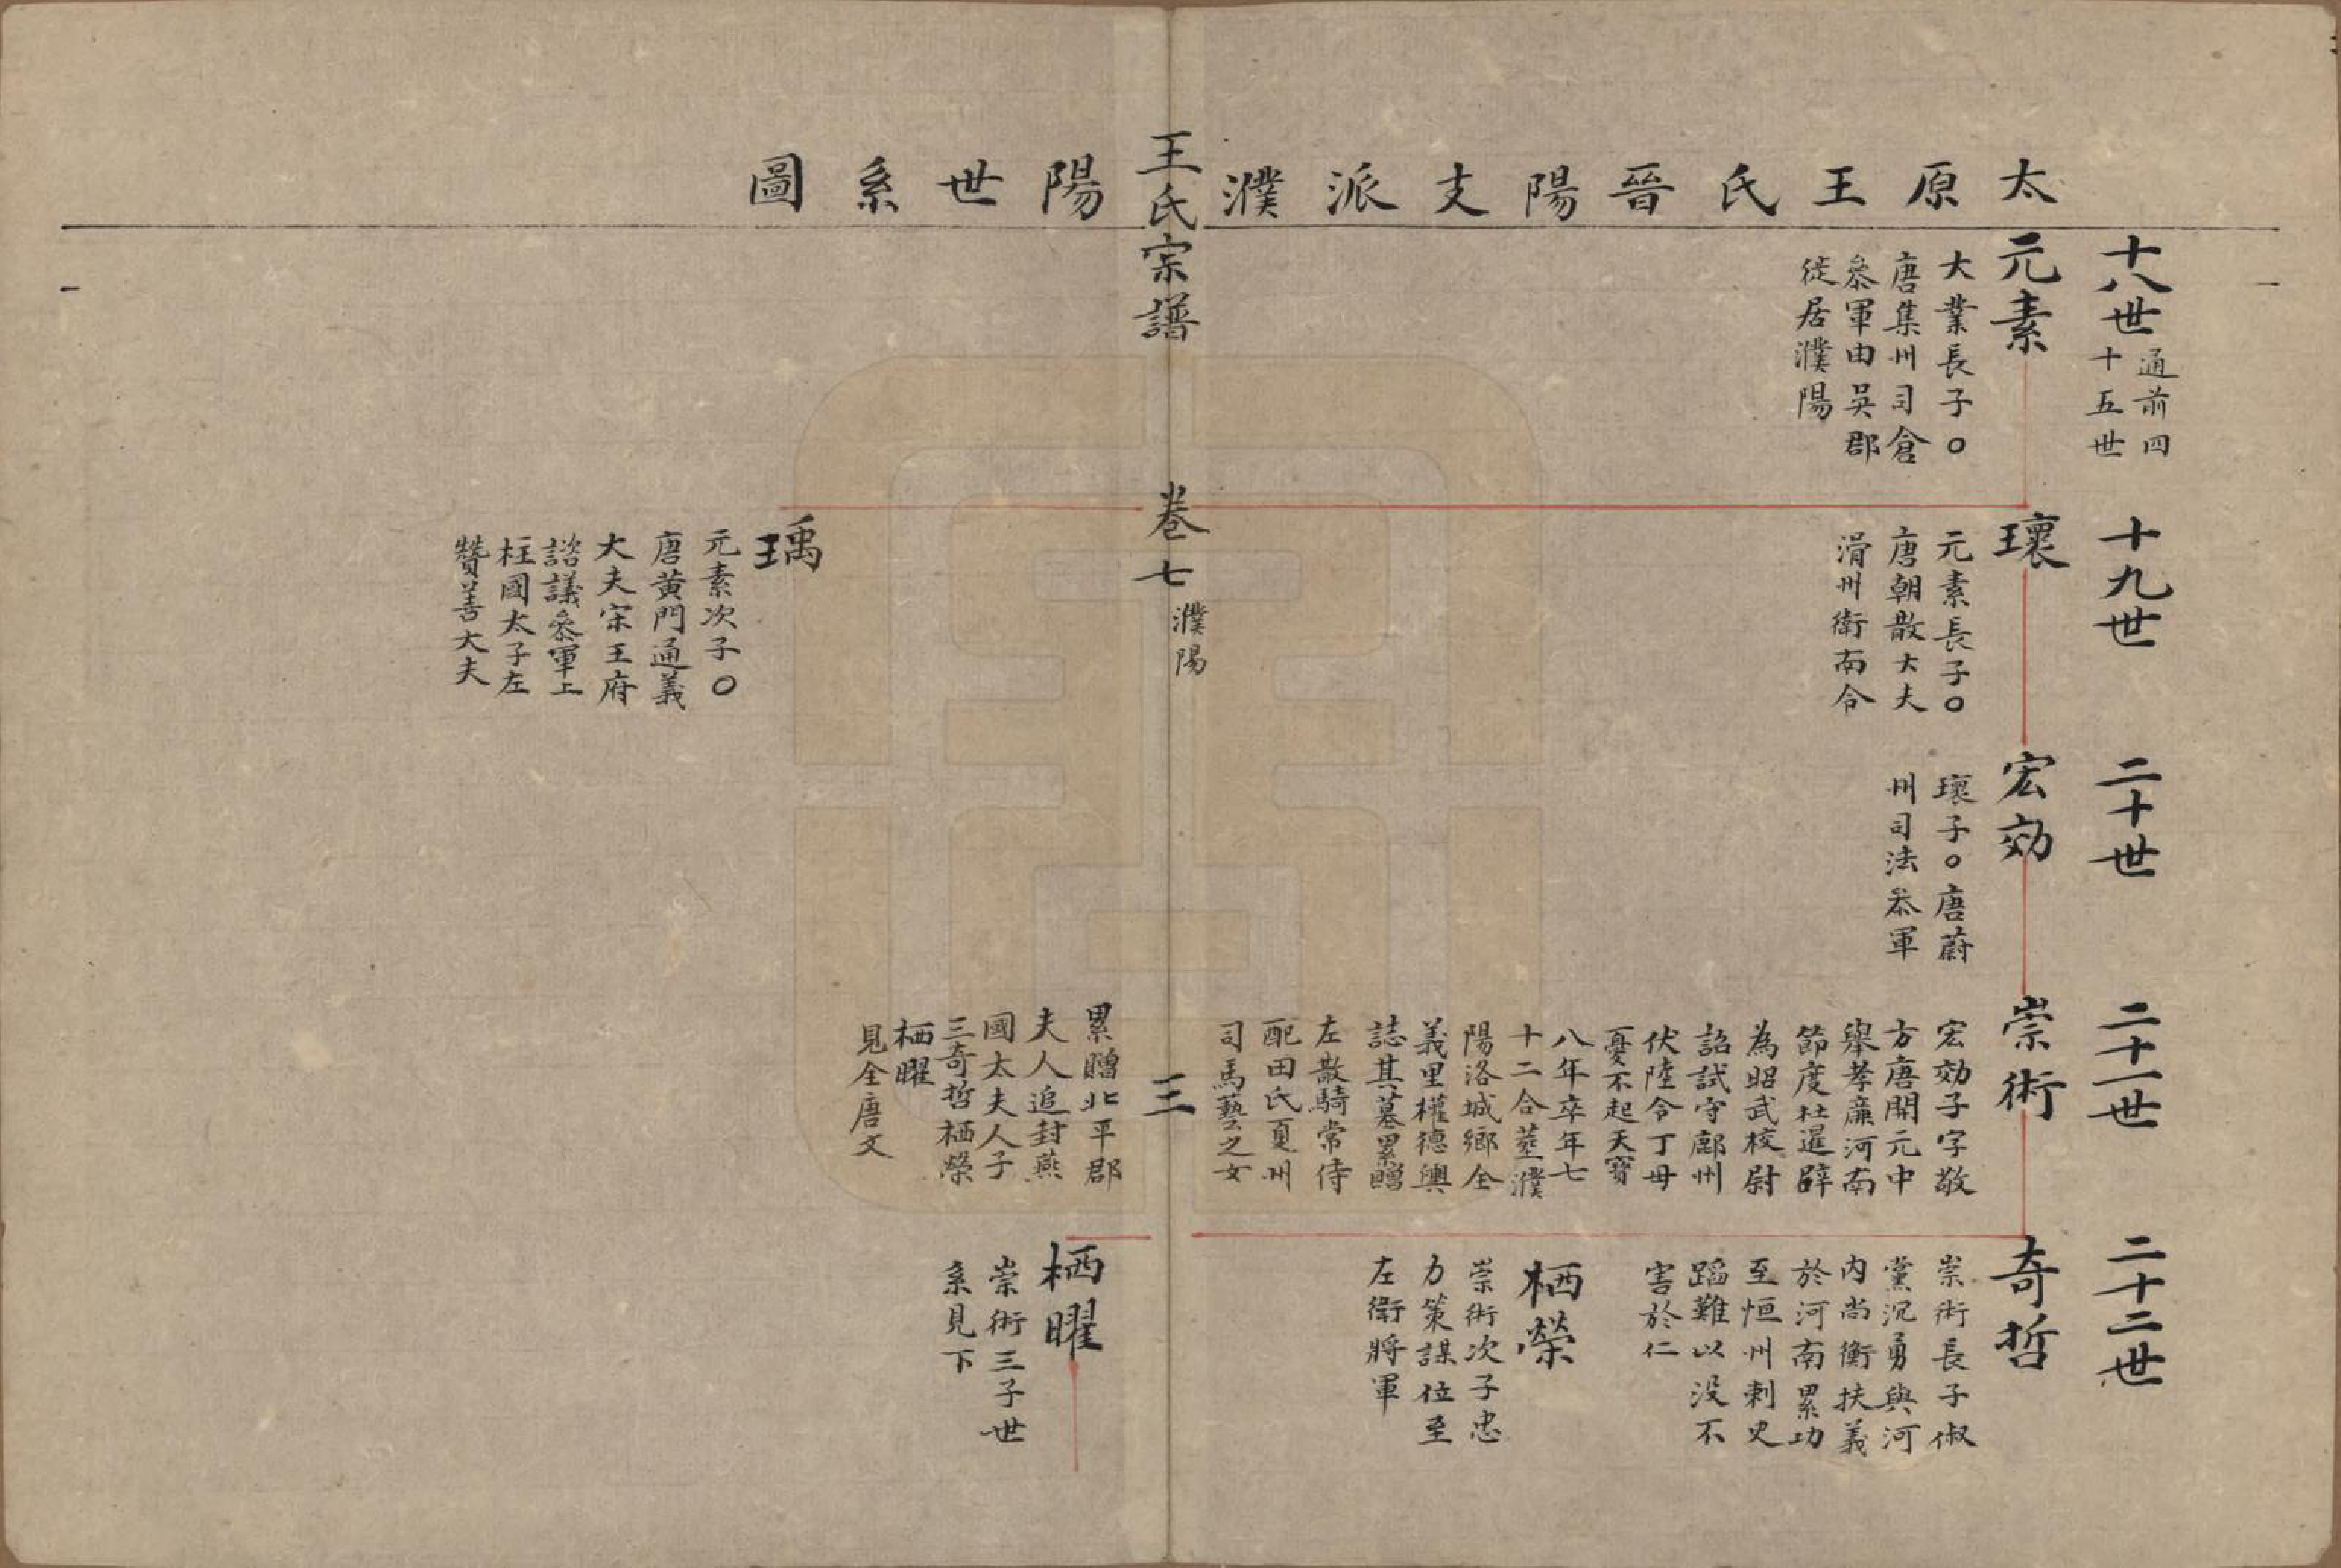 太原王氏晉陽支派濮陽世系圖
王氏宗譜
卷七
濮陽
三
十八世
通前四
十五世
元素
大業長子○
唐集州司倉
叅軍由吳郡
徙居濮陽
十九世
瓌
元素長子○
唐朝散大夫
滑州衛南令
瑀
元素次子○
唐黄門通義
大夫宋王府
諮議叅軍上
柱國太子左
贊善大夫
二十世
宏効
瓌子○唐蔚
州司法叅軍
二十一世
崇術
宏効子字敬
方唐開元中
舉孝廉河南
節度杜暹辟
為昭武校尉
詔試守鄜州
伏陸令丁母
憂不起天寶
八年卒年七
十二合塟濮
陽洛城鄉全
義里權德輿
誌其墓累贈
左散騎常侍
配田氏夏州
司馬藝之女
累贈北平郡
夫人追封燕
國太夫人子
三奇哲栖榮
栖曜
見全唐文
二十二世
奇哲
崇術長子俶
黨沉勇與河
内尚衡扶義
於河南累功
至恒州刺史
蹈難以没不
害於仁
栖榮
崇術次子忠
力策謀位至
左衛將軍
栖曜
崇術三子世
系見下